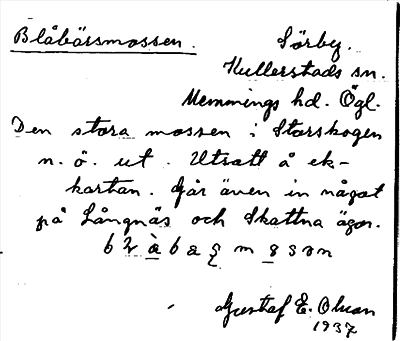 Blåbärsmossen.
Sörby.
Kullerstads sn.
Memmings hd. Ögl.
Den stora mossen i Storskogen
n. ö. ut. Utsatt å ek-
kartan. Går även in något
på Långnäs och Skattna ägor.
Gustaf E. Olson
1937